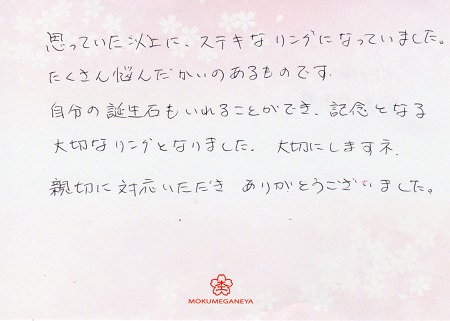 思っていた以上に、ステキなリングになっていました。
たくさん悩んだかいのあるものです.
自分の誕生石もいれることができ、記念となる
大切なリングとなりました。大切にしますネ.
親切に対応いただき ありがとうございました。
MOKUMEGANEYA